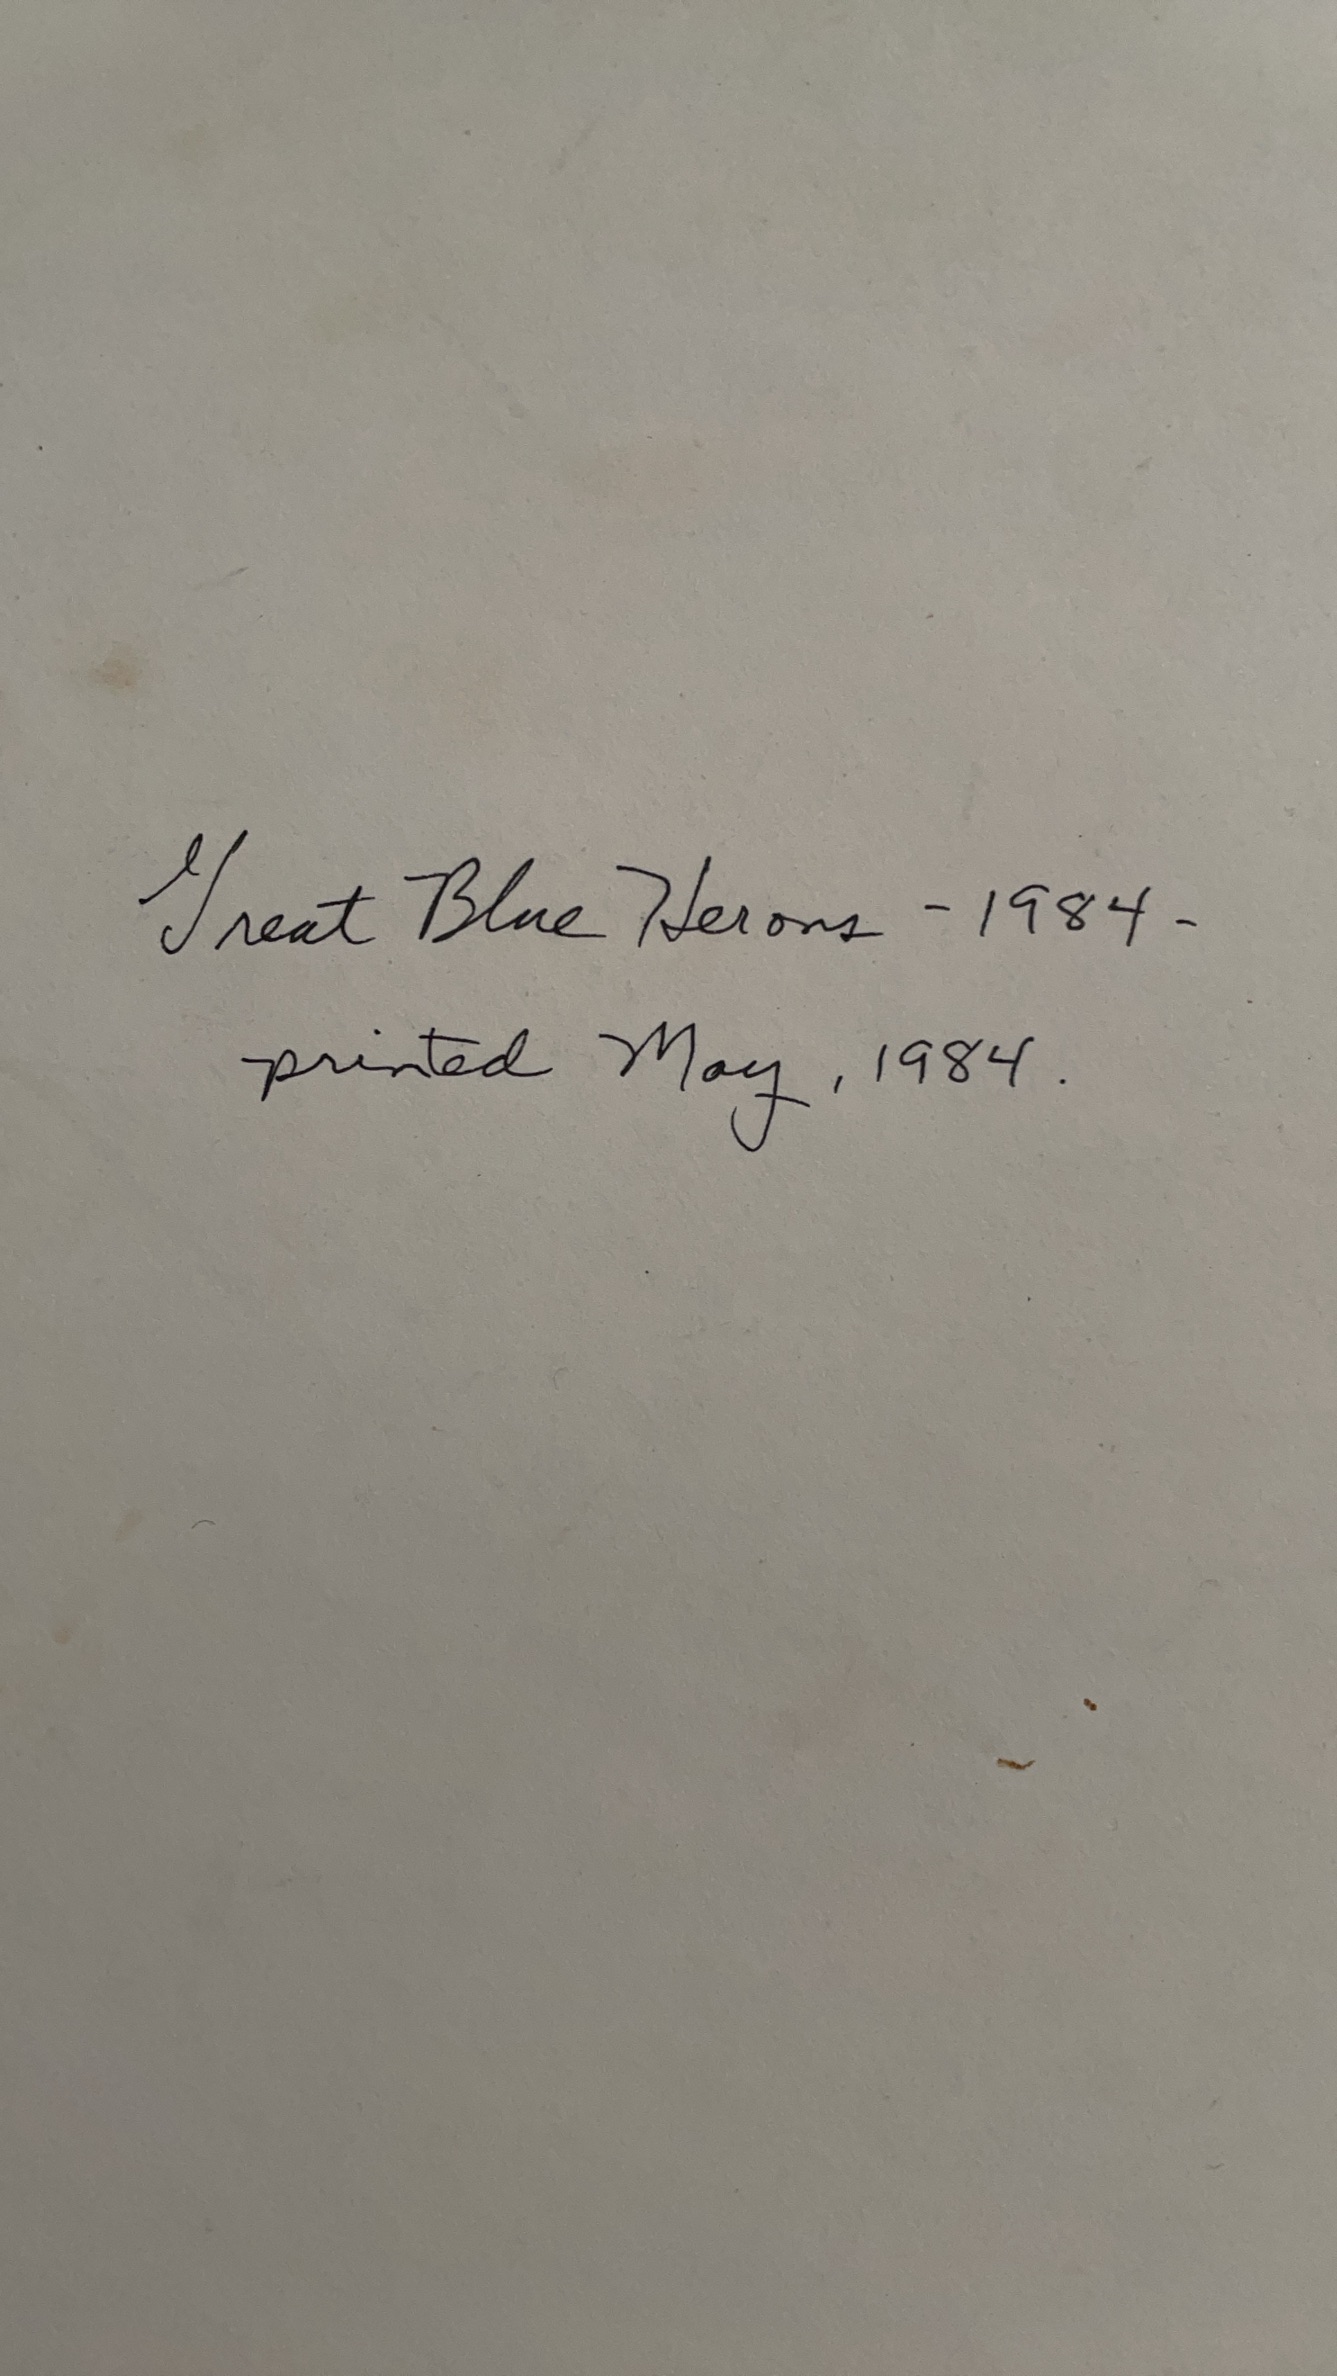 Great Blue Herons - 1984 -
printed May, 1984.